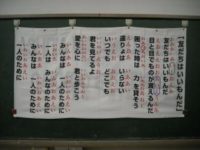 「友だちはいいもんだ」
友だちはいいもんだ
目と目でものが言えるんだ
困った時は 力を貸そう
遠りょは いらない
いつでも どこでも
君を見てるよ
愛を心に 君と歩こう
みんなは 一人のために
一人は みんなのために
みんなは 一人のために
一人のために